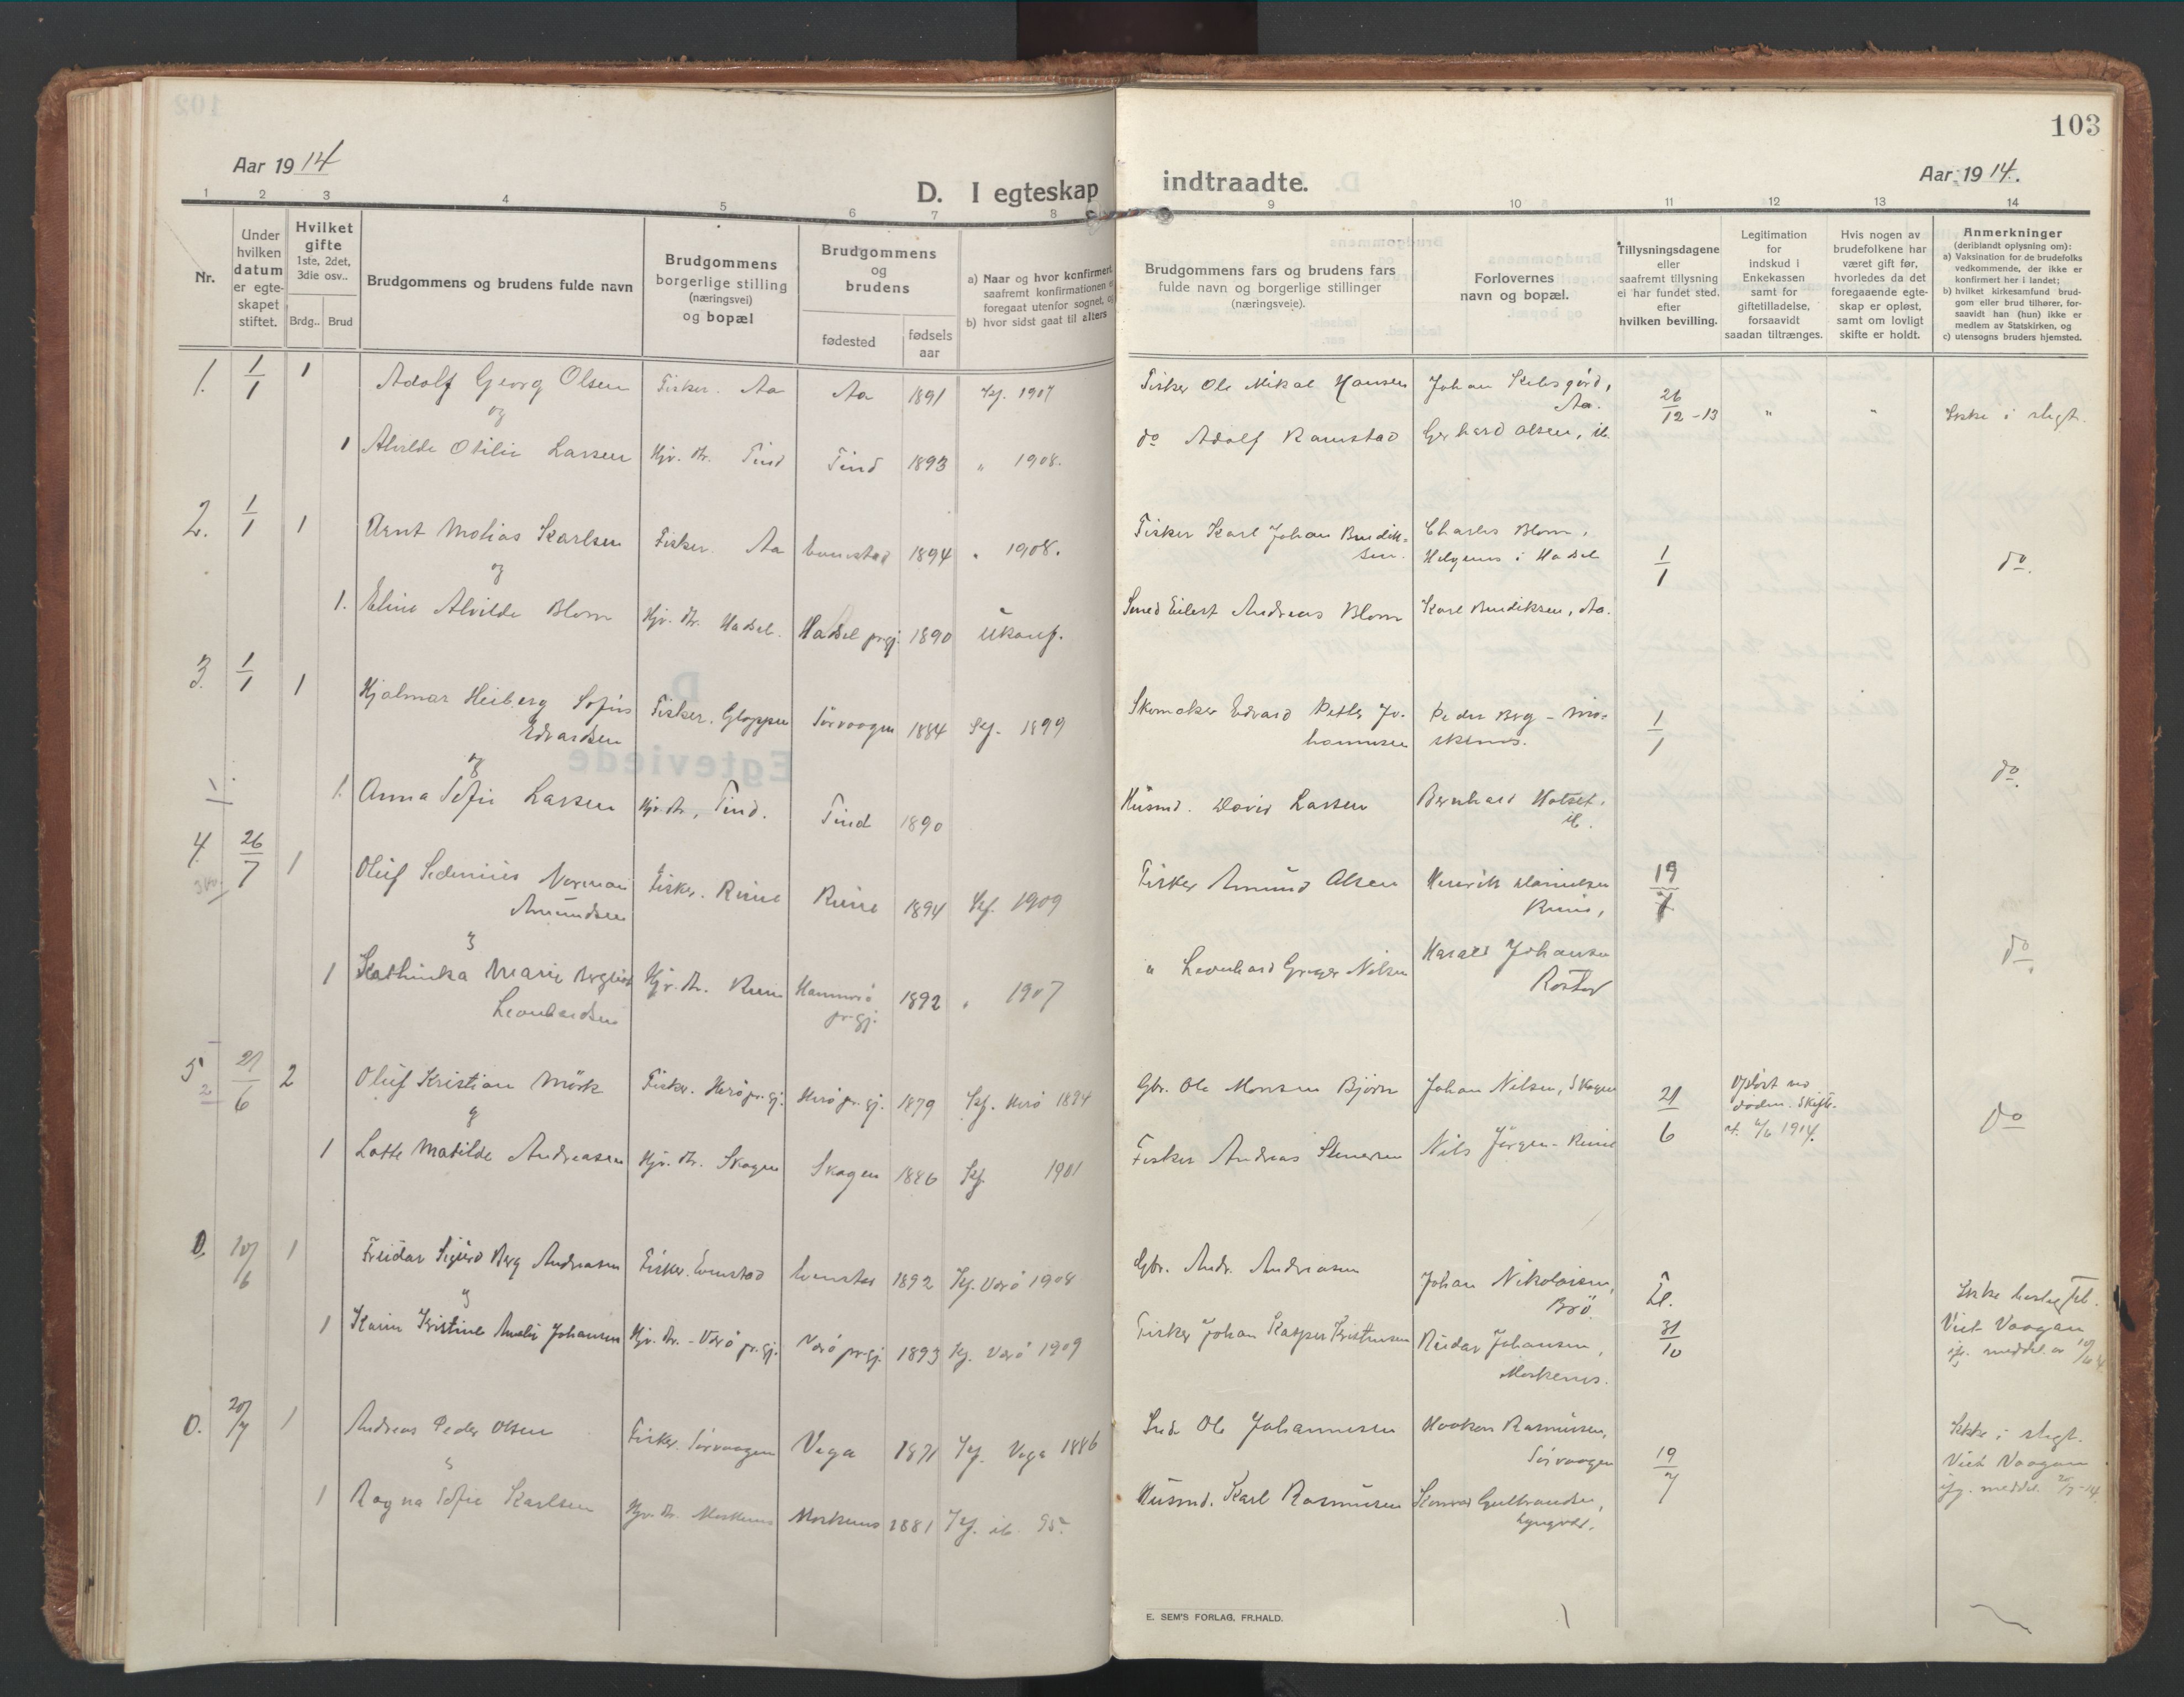 103
Aar 1914
Aar 1914.
D. I egteskap indtraadte.
1 2 3 4 5 6 7 8 9 10 11 12 13 14
Nr.
Under hvilken datum er egteskapet stiftet.
Hvilket gifte 1ste, 2det, 3die osv..
Brdg.. Brud
Brudgommens og brudens fulde navn
Brudgommens borgerlige stilling (næringsvei) og bopæl
Brudgommens og brudens
fødested
fødsels aar
a) Naar og hvor konfirmert
saafremt konfirmationen
foregaat utenfor sognet,
b) hvor sidst gaat til alters
Brudgommens fars og brudens fars fulde navn og borgerlige stillinger (næringsveie).
Forlovernes navn og bopæl.
Tillysningsdagene eller saafremt tillysning ei har fundet sted. efter hvilken bevilling.
Legitimation for indskud i Enkekassen samt for giftetilladelse, forsaavidt saadan tiltrænges.
Hvis nogen av brudefolkene har været gift før, hvorledes da det foregaaende egteskap er opløst, samt om lovligt skifte er holdt.
Anmerkninger
(deriblandt oplysning om):
a) Vaksination for de brudefolks vedkommende, der ikke er konfirmert her i landet;
b) hvilket kirkesamfund brudgom eller brud tilhører, forsaavidt han (hun) ikke er medlem av Statskirken, og
c) utensogns bruders hjemsted.
1. 1/1 1 Adolf Georg Olsen Fisker. Aa Aa 1891 Kf. 1907 Fisker Ole Mikal Hansen Johan
og Aa. 26/12-13 " " Ikke i slegt.
1 Alvilde Otilie Larsen Hjv. dtr. Tind Tind 1893 " 1908. do Adolf Ramstad Gerhard Olsen, ib.
2. 1/1 1 Arnt Matias Karlsen Fisker. Aa Evenstad 1894 " 1908. Fisker Karl Johan Bendiksen. Charles Blom,
og Helgenes i Hadsel 1/1 do.
1. Eline Alvilde Blom Hjv. dtr. Hadsel. Hadsel prgj. 1890 Ukonf. Smed Eilert Andreas Blom Karl Bendiksen, Aa.
3. 1/1 1 Hjalmar Heiberg Sofus Fisker. Gloppen Sörvaagen 1884 Kf. 1899 Skomaker Edvard Petter Jo- Peder Berg - Mo-
Edvardsen hannesen skenes. 1/1
og do.
1. Anna Sofie Larsen Hjv. dtr, Tind. Tind 1890 Husmd. David Larsen Bernhard
ib.
4. 26/7 1 Oluf Sedenius Norman Fisker. Reine Reine 1894 Kf. 1909 Fisker Amund Olsen Henrik Danielsen 19/7
Amundsen Reine,
1 Kathinka Marie Bergliot Hjv. dtr. Reine Hammerö 1892 " 1907 " Leonhard Greger Nilsen Harald Johansen do.
Leonhardsen pr.gj.
5 21/6 2 Oluf Kristian Mörk Fisker. Herö pr.gj. Herö pr.gj. 1879 Kf. Herö 1894 Gbr. Ole Monsen Björn Johan Nilsen, Skagen 21/6 Oplöst ved döden. Skifte-
og at. 6/6 1914. do
1 Lotte Matilde Andreasen Hjv. dtr. Skagen Skagen 1886 Kf. 1901 Fisker Andreas Stenersen Nils Jörgen - Reine
0. 10/6 1 Freidar Sigurd Berg Andreasen Fisker. Evenstad Evenstad 1892 Kf. Værö 1908 Gbr. Andr. Andreasen Johan Nikolaisen,
og
1 Karen Kristine Amalie Johansen Hjv. dtr. - Værö pr.gj. Værö pr.gj. 1893 Kf. Værö 1909 Fisker Johan Kasper Kristensen Reidar Johansen, 31/10 Viet Vaagan
Moskenes. meddel. av
0. 20/7 1 Andreas Peder Olsen Fisker. Sörvaagen Vega 1871 Kf. Vega 1886 Ole Johannesen Haakon Rasmussen, Ikke i slegt.
Sörvaagen 19/7 Viet Vaagan
1 Ragna Sofie Karlsen Hjv. dtr. Moskenes Moskenes 1881 Kf. ib. 95. Husmd. Karl Rasmussen Konrad Gulbrandsen, meddel. 20/7-14.
E. SEM'S FORLAG, FR.HALD.